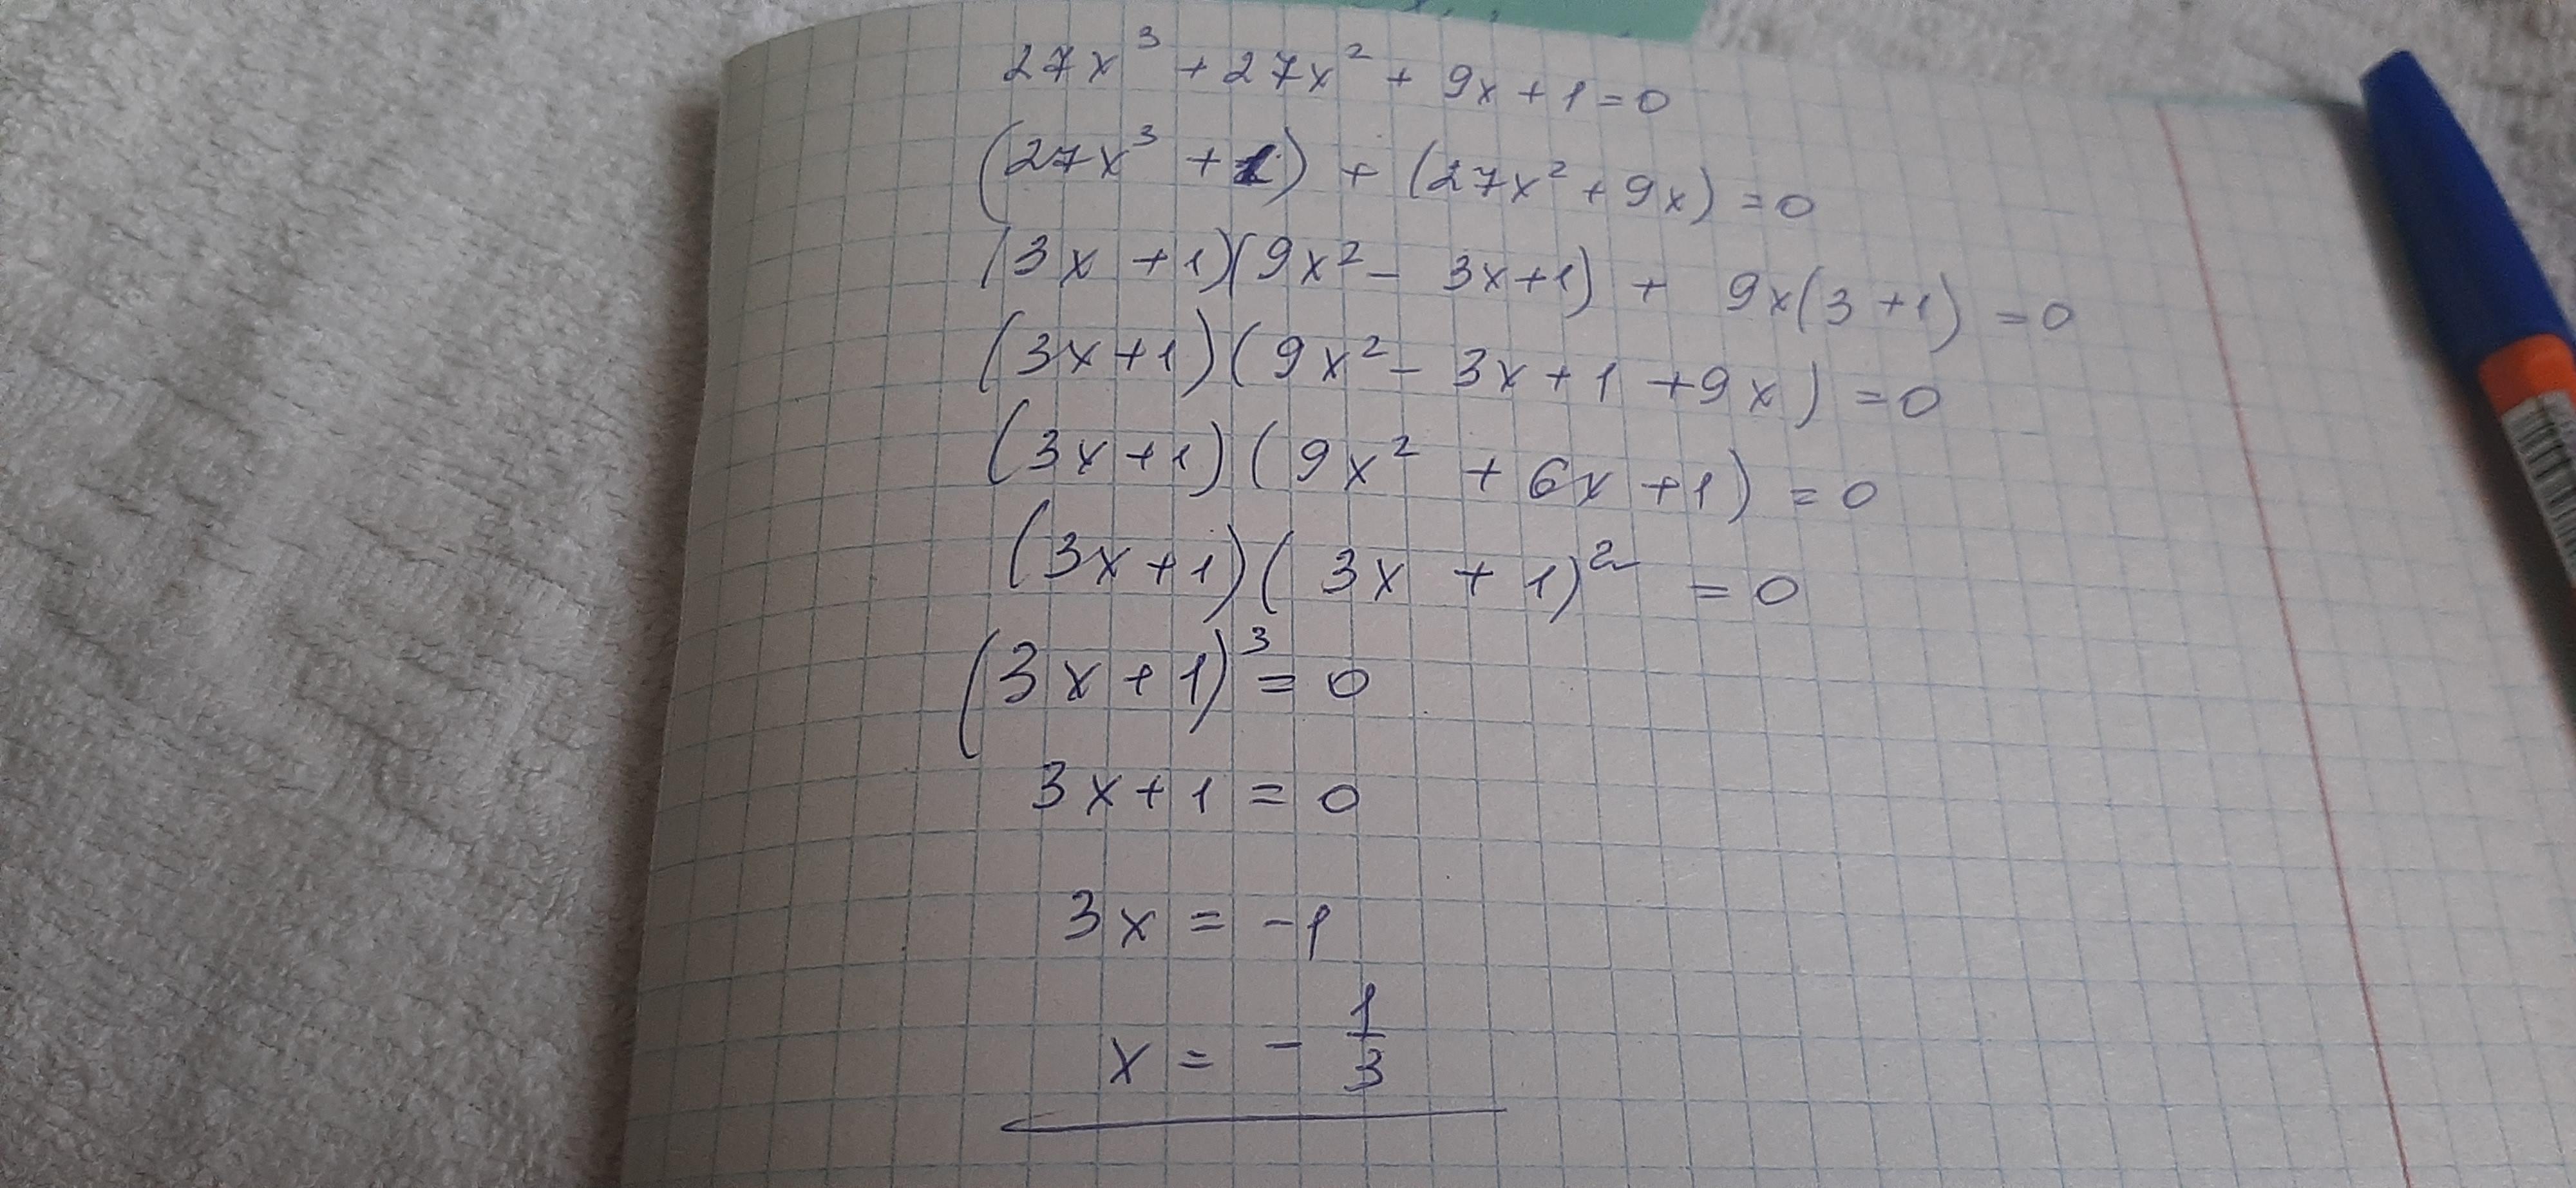 27x³ + 27x² + 9x + 1 = 0
(27x³ + 1) + (27x² + 9x) = 0
(3x + 1)(9x² - 3x + 1) + 9x(3 + 1) = 0
(3x + 1)(9x² - 3x + 1 + 9x) = 0
(3x + 1)(9x² + 6x + 1) = 0
(3x + 1)(3x + 1)² = 0
(3x + 1)³ = 0
3x + 1 = 0
3x = -1
x = - 1/3